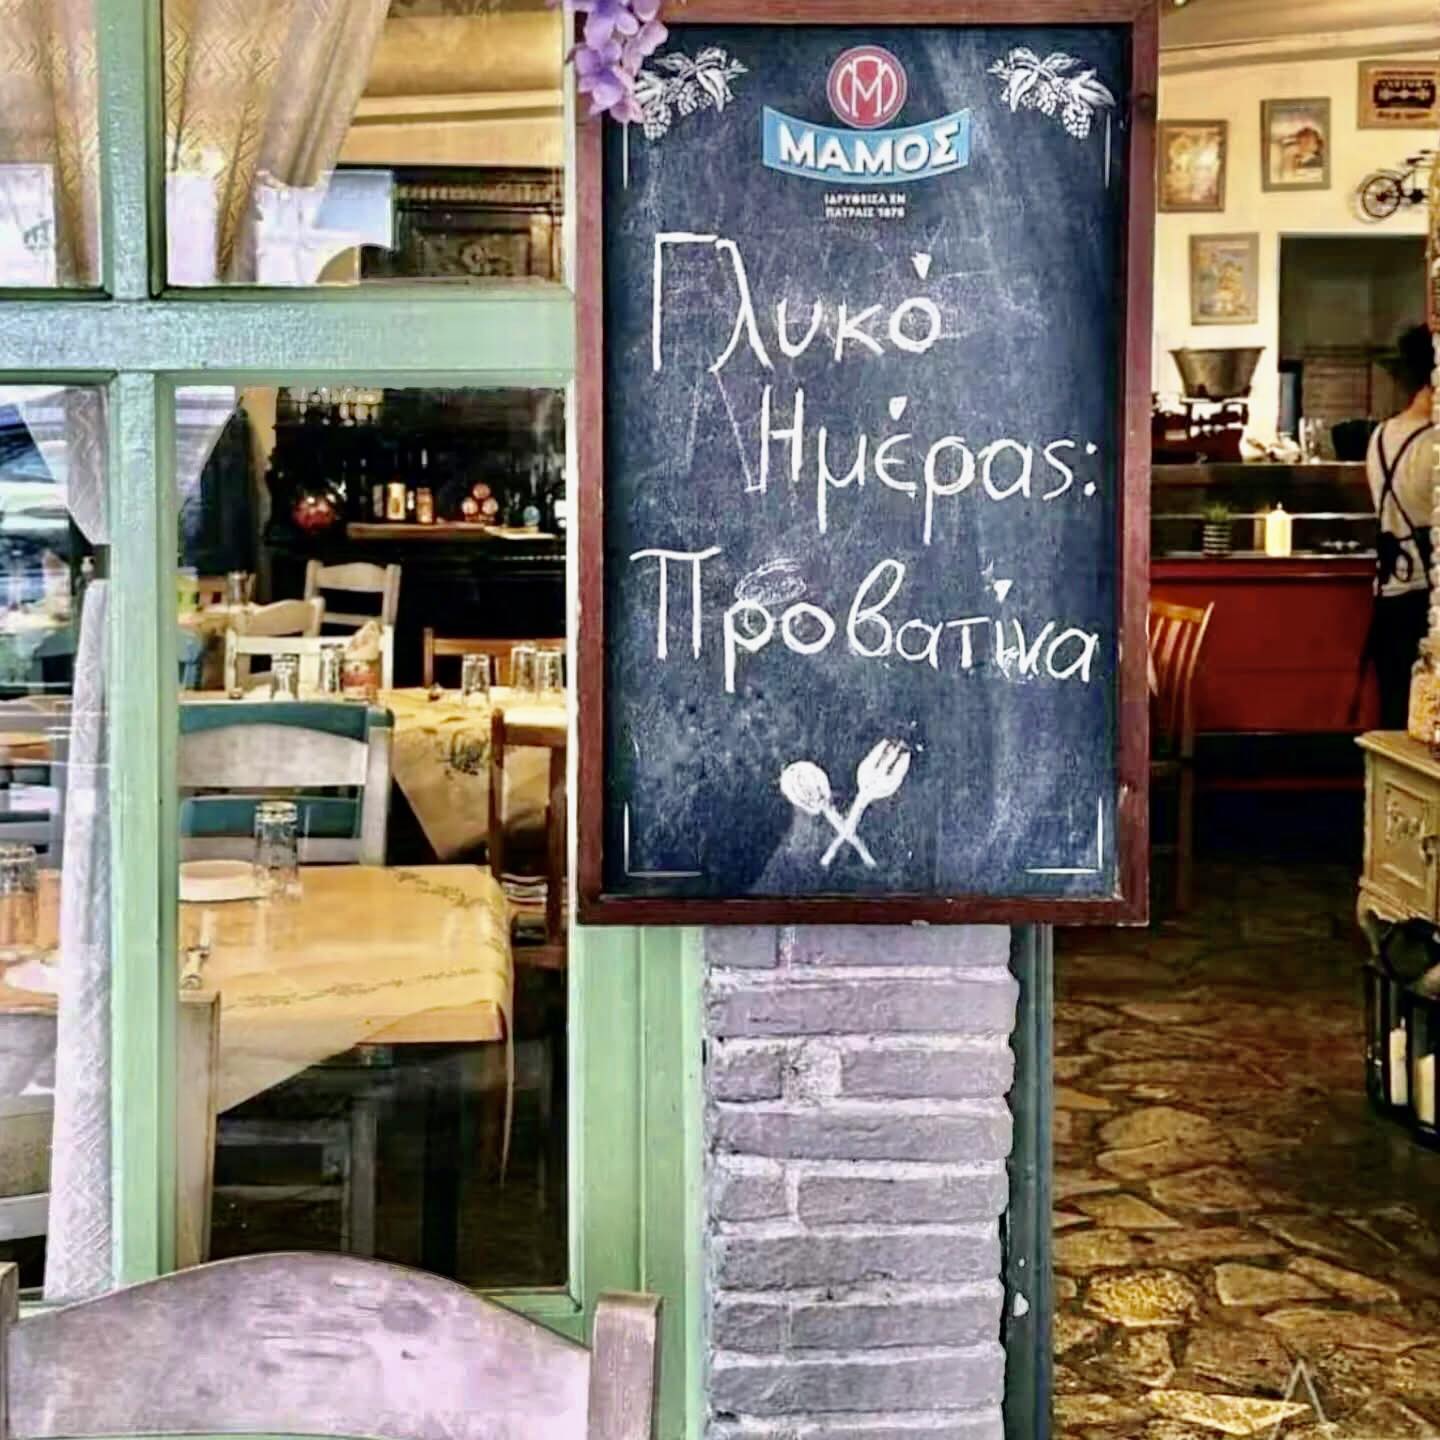 ΜΑΜΟΣ
ΙΔΡΥΘΕΙΣΑ ΕΝ
ΠΑΤΡΑΙΣ 1876
Γλυκό
Ημέρας:
Προβατίνα